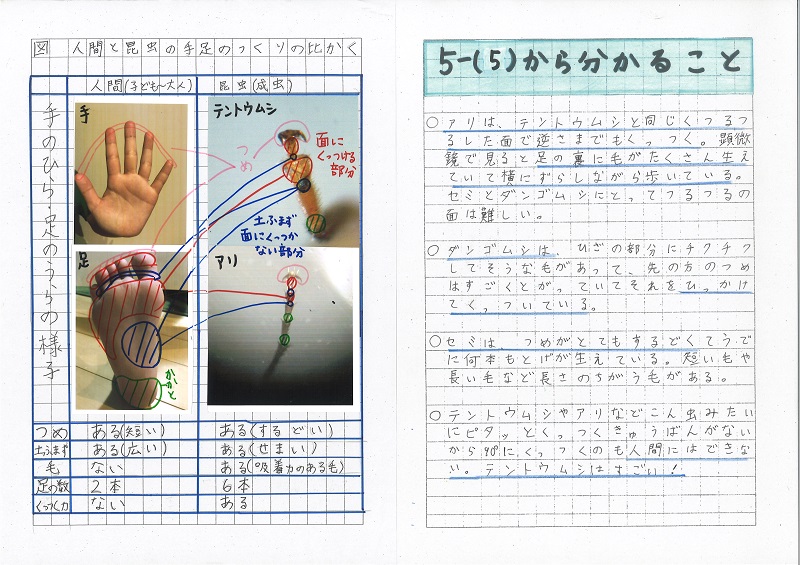 図 人間と昆虫の手足のつくりの比かく
人間(子ども〜大人) 昆虫(成虫)
手のひら・足のうらの様子
手
テントウムシ
つめ
面に
くっつける
部分
土ふまず
面にくっつか
ない部分
足
アリ
かかと
つめ ある(短い) ある(するどい)
土ふまず ある(広い) ある(せまい)
毛 ない ある(吸着力のある毛)
足の数 2本 6本
くっつく力 ない ある
5-(5)から分かること
○アリは、テントウムシと同じくつるつ
るした面で逆さまでもくっつく。顕微
鏡で見ると足の裏に毛がたくさん生え
ていて横にずらしながら歩いている。
セミとダンゴムシにとってつるつるの
面は難しい。
○ダンゴムシは、ひざの部分にチクチク
してそうな毛があって、先の方のつめ
はすごくとがっていてそれをひっかけ
てくっついている。
○セミは、つめがとてもするどくてうで
に何本もとげが生えている。短い毛や
長い毛など長さのちがう毛がある。
○テントウムシやアリなどこん虫みたい
にピタッとくっつくきゅうばんがない
から90°にくっつくのも人間にはできな
い。テントウムシはすごい!